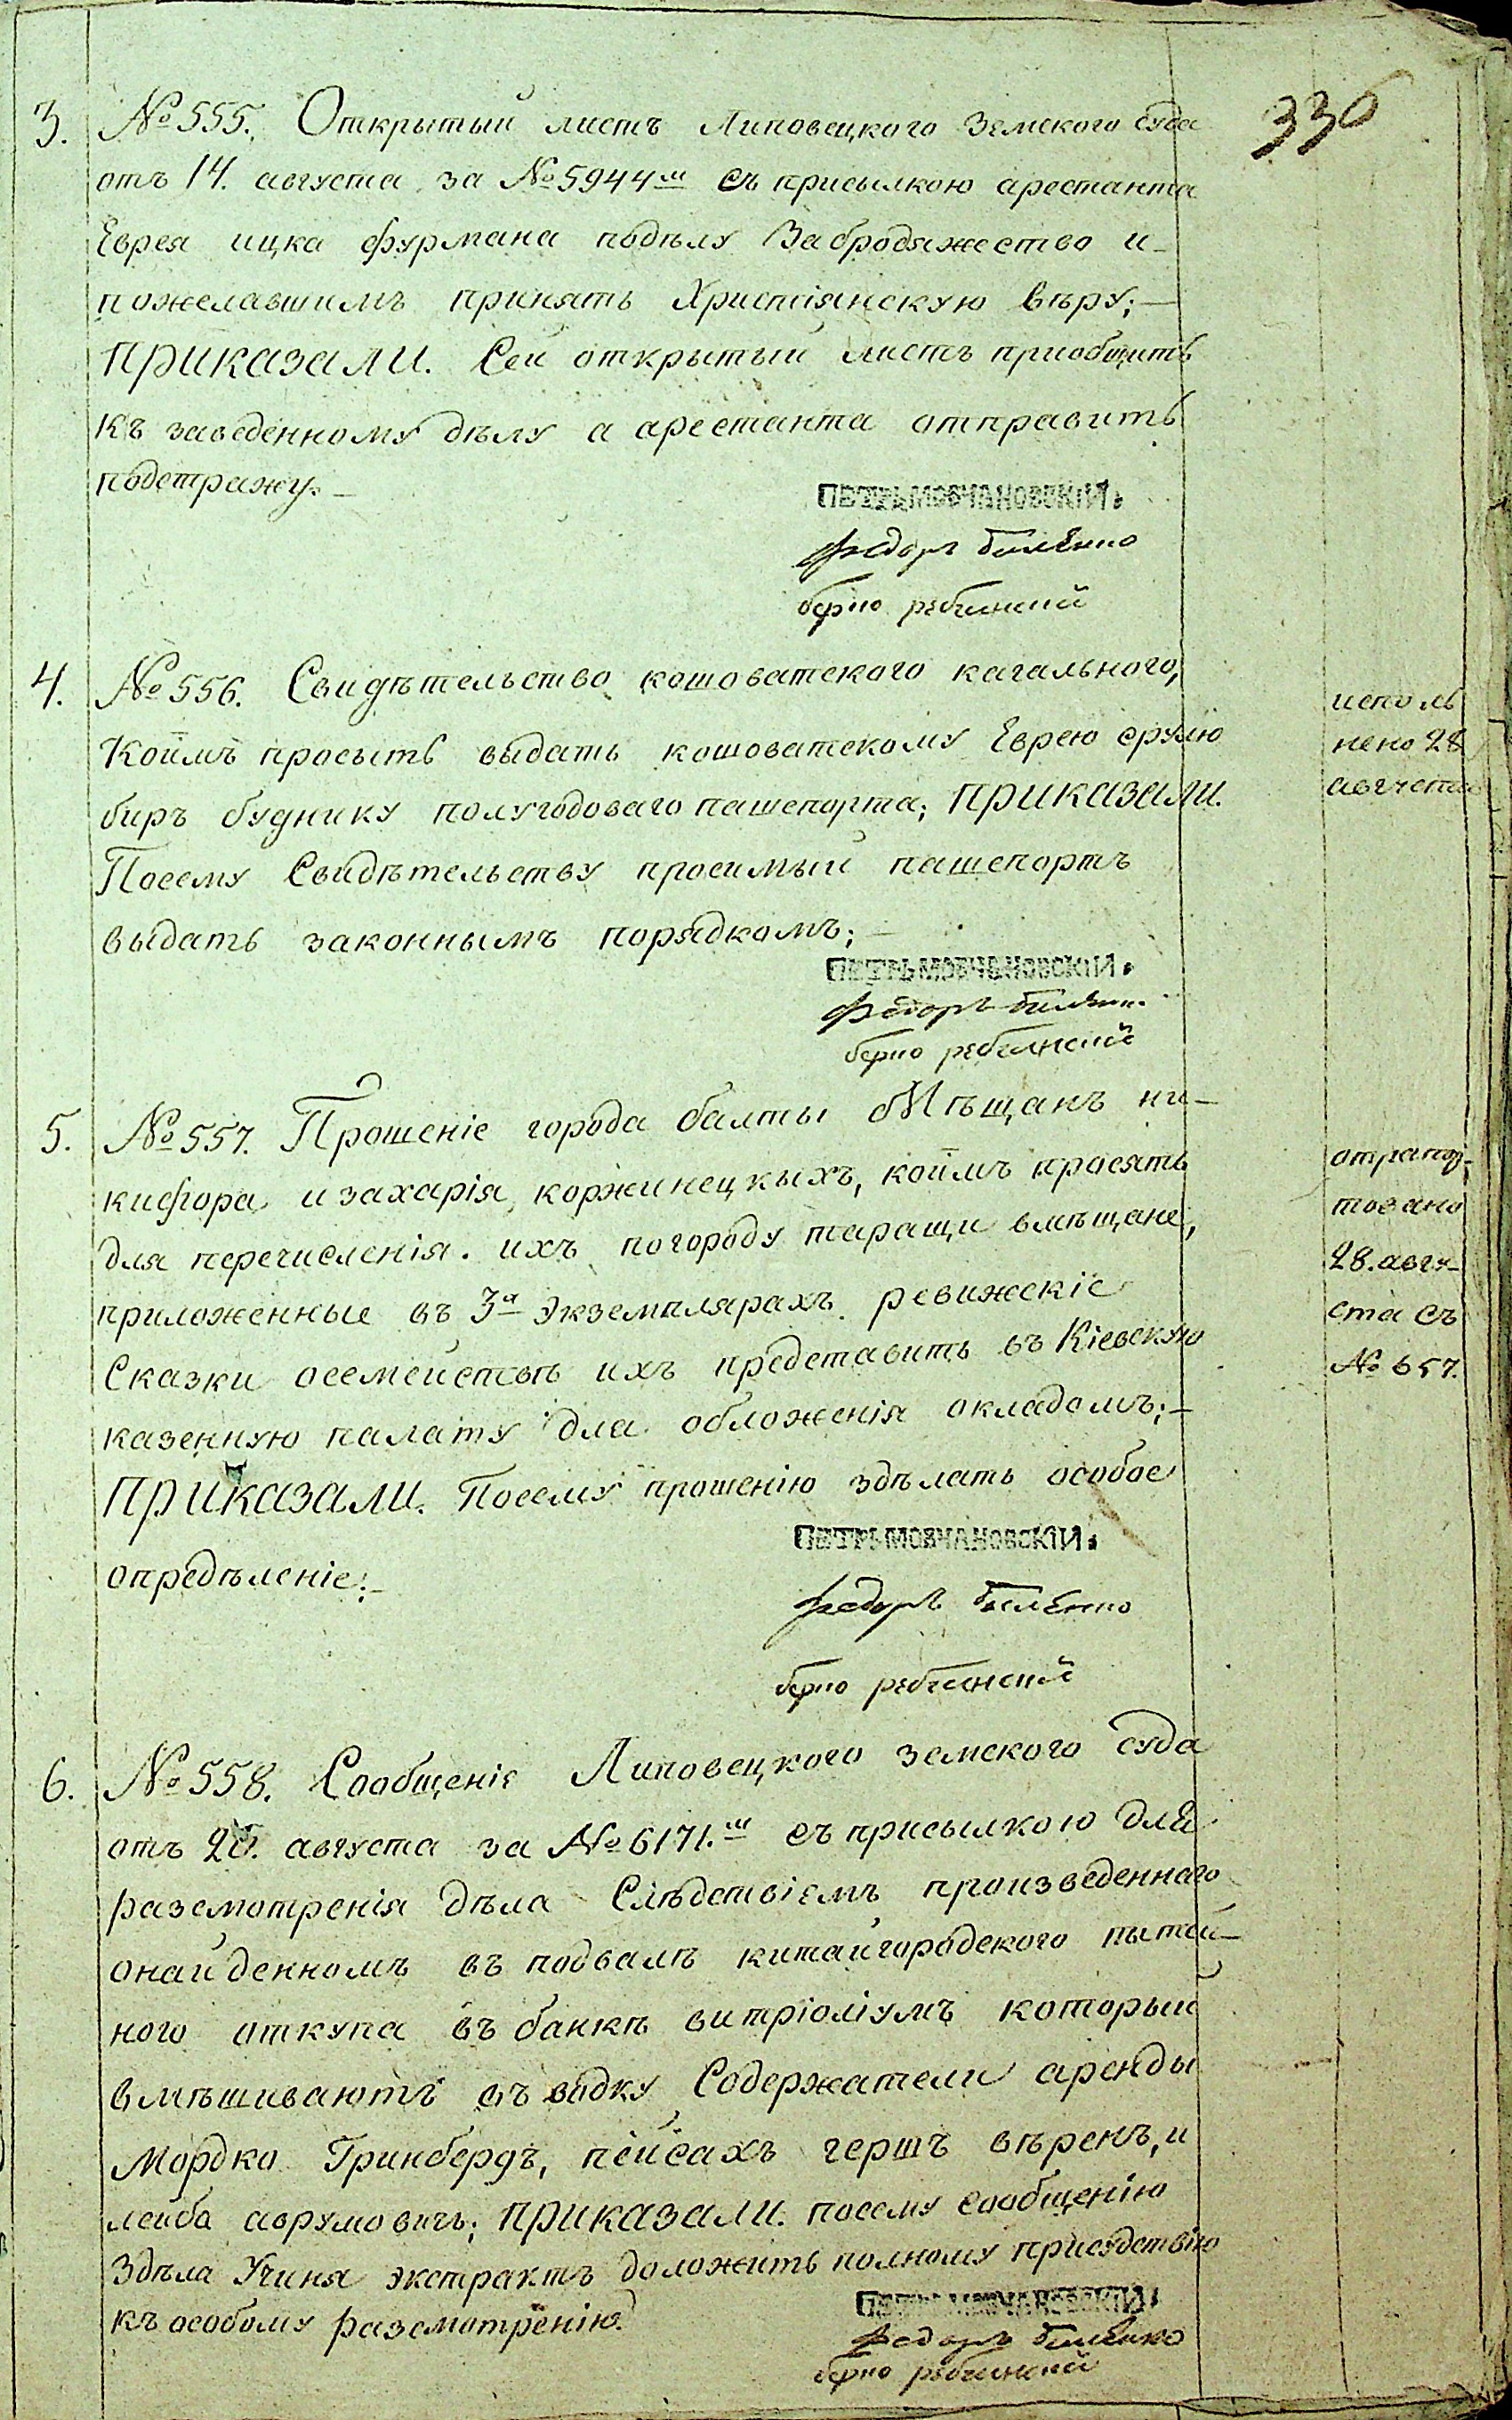 336
3. № 555. Открытый листъ Липовецкого Земского суда
отъ 14. августа за № 5944м съ присылкою арестанта
Еврея ицка фурмана подѣлу Забродяжество и
пожелавшимъ принять Християнскую вѣру;
приказали. Сей открытый листъ приобщить
къ заведенному дѣлу а арестанта отправить
подстражу.
ПЕТРЪ МОВЧАНОВСКІЙ.
Федоръ билѣнко
берко
4. № 556. Свидѣтельство кошоватского кагального,
коимъ просить выдать кошоватскому Еврею срулю
биръ буднику полугодоваго пашепорта; приказали.
Посему Свидѣтельству просимый пашепортъ
выдать законнымъ порядкомъ;
исполь
нено 28
августа
ПЕТРЪ МОВЧАНОВСКІЙ.
Федоръ билѣнко
берко
5. № 557. Прошеніе города балты обмѣщанъ ни-
кифора и захарія коржинецкыхъ, коимъ просять
для перечисленія. ихъ погороду таращи вмѣщане,
приложенные въ 3х экземплярахъ ревижскіе
Сказки осемействѣ ихъ представить въ Кіевскую
казенную палату для обложенія окладомъ;
приказали. Посему прошенію здѣлать особое
опредѣленіе;
отрапор-
товано
28. авгу-
ста съ
№ 657.
ПЕТРЪ МОВЧАНОВСКІЙ.
Федоръ билѣнко
берко
6. № 558. Сообщеніе Липовецкого земского суда
отъ августа за № 6171.м съ присылкою для
разсмотренія дѣла Слѣдствіемъ произведеннаго
онайденномъ въ подвалѣ китайгородского питей-
ного откупа въ банкѣ витріоліумъ который
вмѣшиваютъ въ водку Содержатели аренды
Мордко Гринбергъ, пейсахъ гершъ вѣренъ, и
лейба аврумовичъ; приказали. посему сообщенію
Здѣла Учиня экстрактъ доложить полному присудствію
къ особому разсмотренію.
ПЕТРЪ МОВЧАНОВСКІЙ.
Федоръ билѣнко
берко